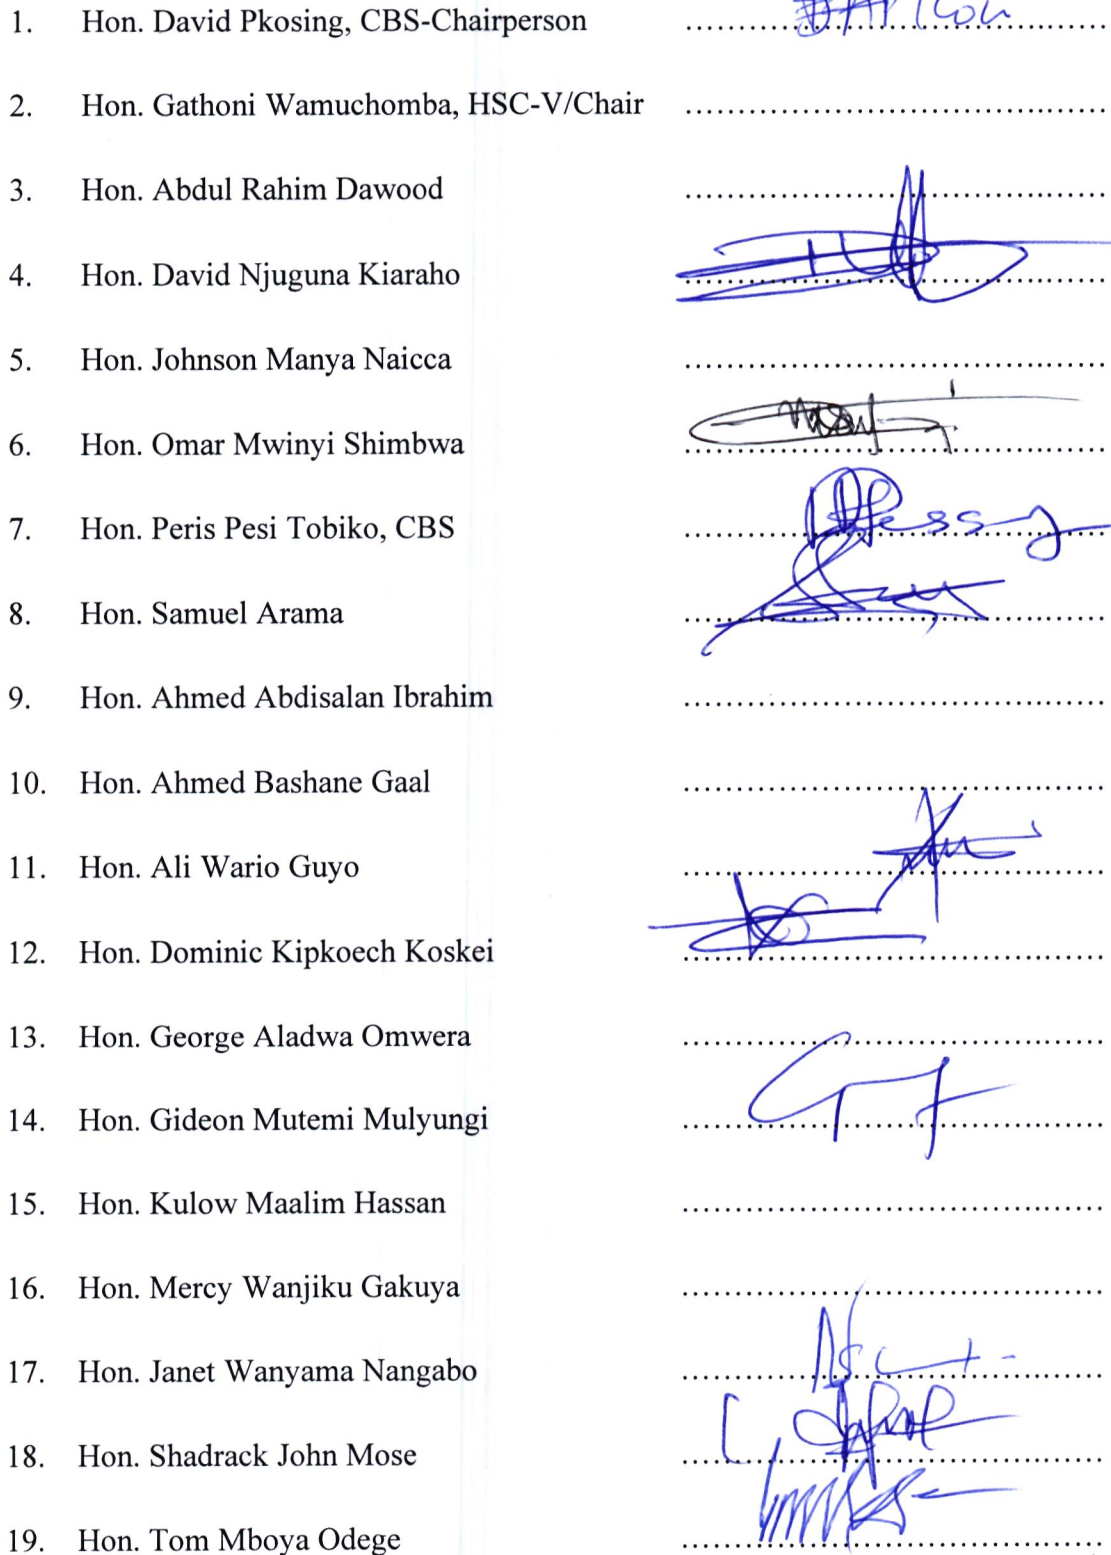 1. Hon. David Pkosing, CBS-Chairperson ........................................
2. Hon. Gathoni Wamuchomba, HSC-V/Chair ........................................
3. Hon. Abdul Rahim Dawood ........................................
4. Hon. David Njuguna Kiaraho ........................................
5. Hon. Johnson Manya Naicca ........................................
6. Hon. Omar Mwinyi Shimbwa ........................................
7. Hon. Peris Pesi Tobiko, CBS ........................................
8. Hon. Samuel Arama ........................................
9. Hon. Ahmed Abdisalan Ibrahim ........................................
10. Hon. Ahmed Bashane Gaal ........................................
11. Hon. Ali Wario Guyo ........................................
12. Hon. Dominic Kipkoech Koskei ........................................
13. Hon. George Aladwa Omwera ........................................
14. Hon. Gideon Mutemi Mulyungi ........................................
15. Hon. Kulow Maalim Hassan ........................................
16. Hon. Mercy Wanjiku Gakuya ........................................
17. Hon. Janet Wanyama Nangabo ........................................
18. Hon. Shadrack John Mose ........................................
19. Hon. Tom Mboya Odege ........................................